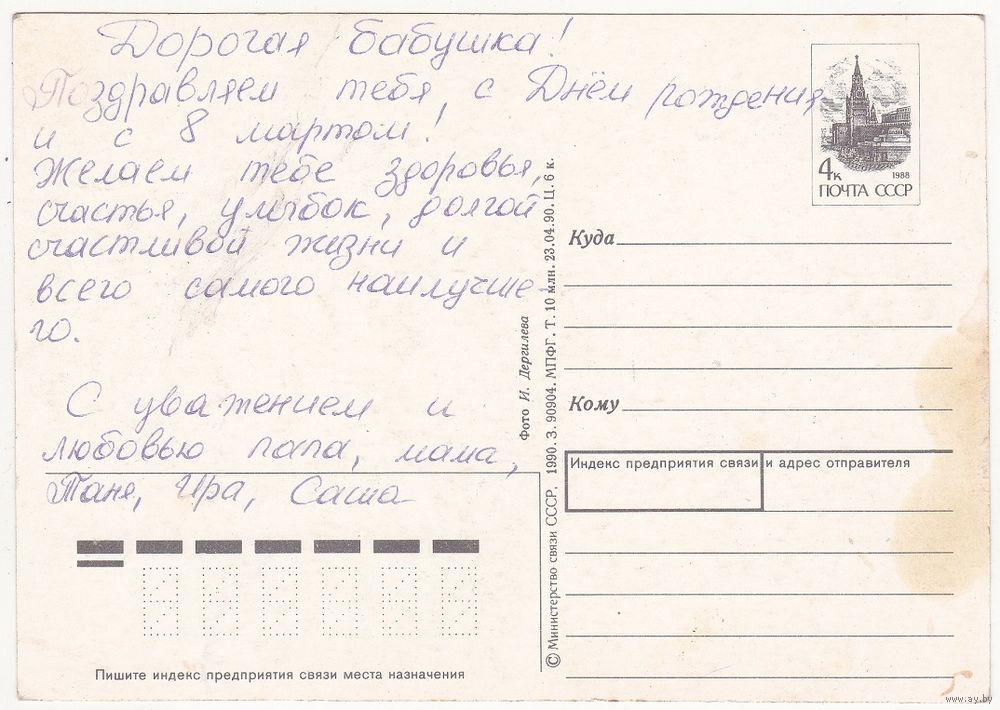 Дорогая бабушка!
Поздравляем тебя, с Днём рождения
и с 8 мартом!
Желаем тебе здоровья,
счастья, улыбок, долгой
счастливой жизни и
всего самого наилучше-
го.
С уважением и
любовью папа, мама,
Таня, Ира, Саша
Пишите индекс предприятия связи места назначения
Фото И. Дергилева
© Министерство связи СССР, 1990. З. 90904. МПФГ. Т. 10 млн. 23.04.90. Ц. 6 к.
4к
1988
ПОЧТА СССР
Куда
Кому
Индекс предприятия связи и адрес отправителя
www.ay.by